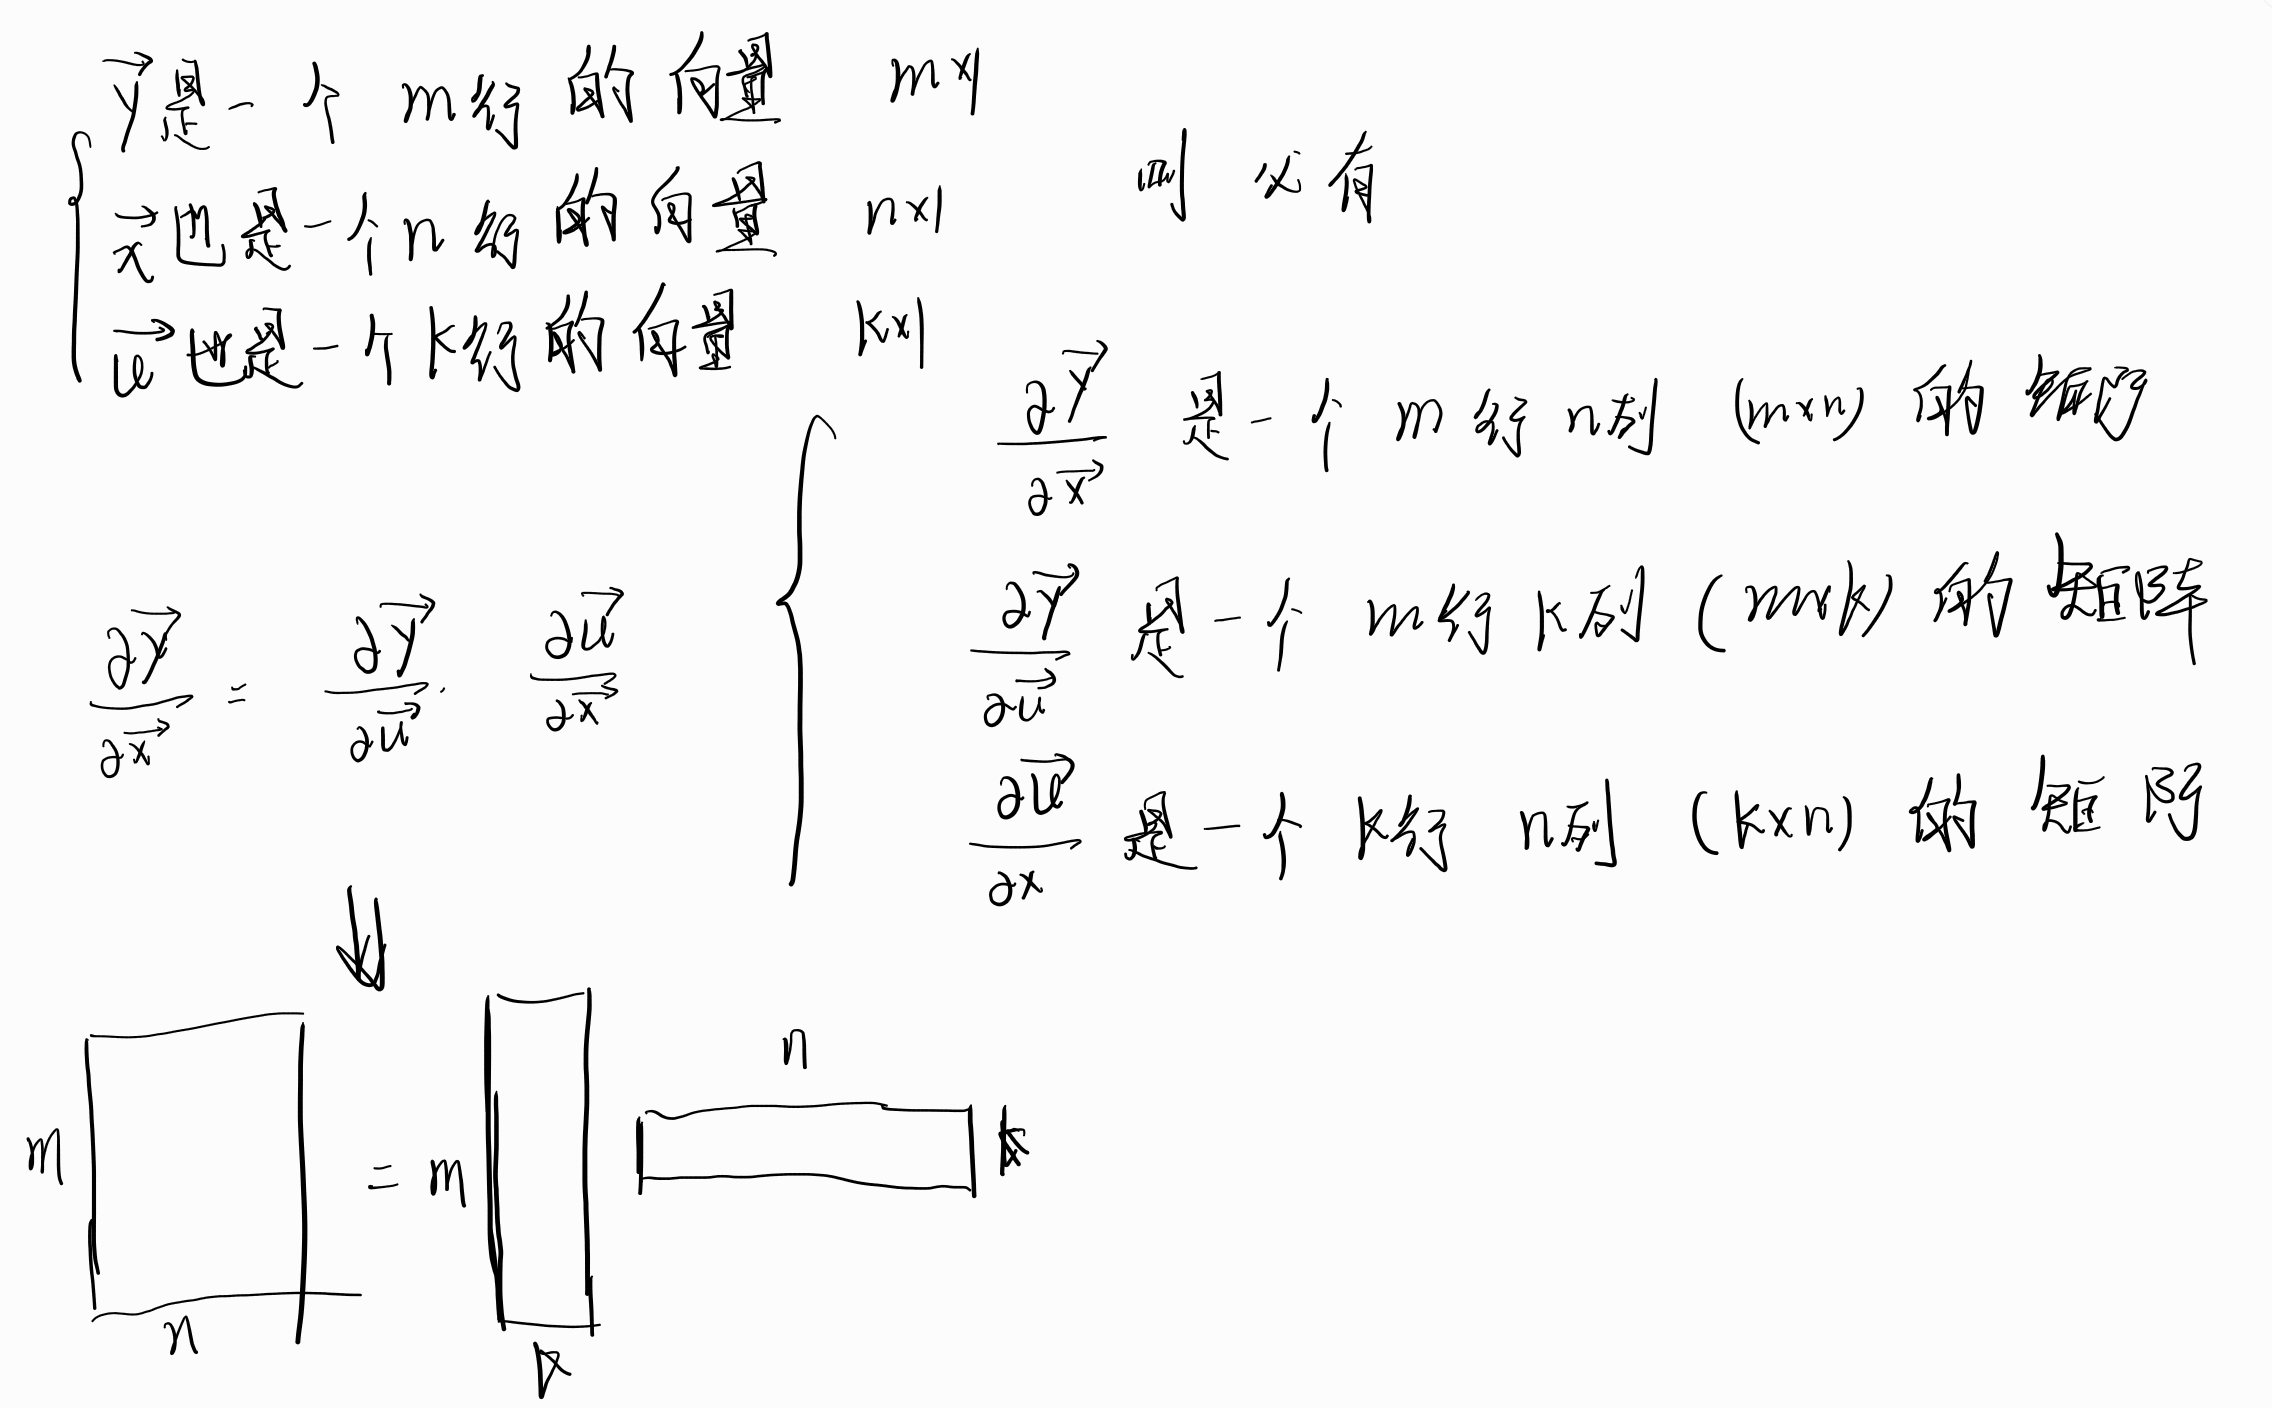 y⃗是一个 m行的向量 m×1
x⃗也是一个n行的向量 n×1
u⃗也是一个k行的向量 k×1
则必有
∂y⃗/∂x⃗ 是一个 m行n列 (m×n) 的矩阵
∂y⃗/∂u⃗ 是一个 m行k列 (m×k) 的矩阵
∂u⃗/∂x 是一个 k行 n列 (k×n) 的矩阵
∂y⃗/∂x⃗ = ∂y⃗/∂u⃗ · ∂u⃗/∂x⃗
⇓
n
m = m k
n k